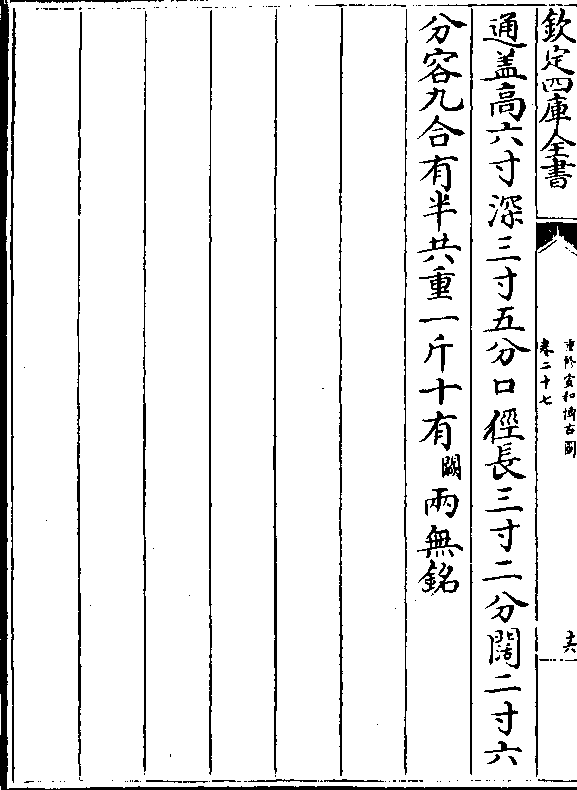 欽定四庫全書
重修宣和博古圖
卷二十七
十六
通蓋高六寸深三寸五分口徑長三寸二分闊二寸六
分容九合有半共重一斤十有闕兩無銘